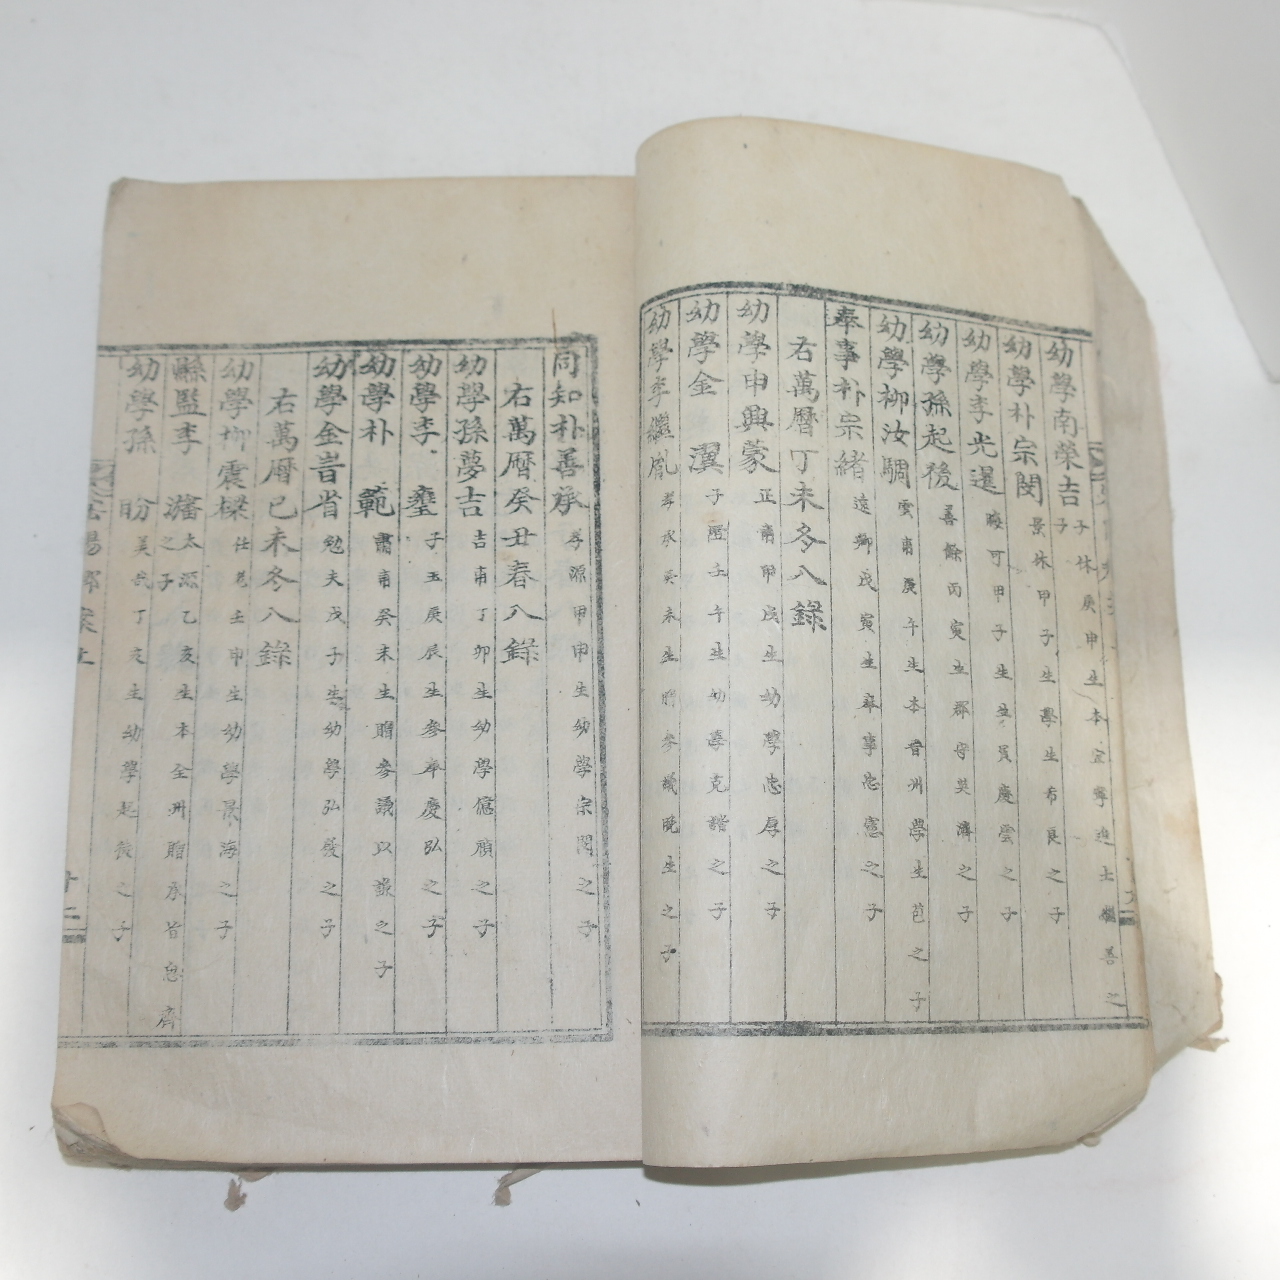 幼學南榮吉子休庚申生本宜寧進士繼善之子
幼學朴宗閔景休甲子生學生希良之子
幼學李光暹晦可甲子生生員慶雲之子
幼學孫起後善餘丙寅生郡守英濟之子
幼學柳汝騆雲甫庚午生本晋州學生芑之子
奉事朴宗緖遠卿戊寅生奉事忠憲之子
右萬曆丁未冬八錄
幼學申興蒙正甫甲戌生幼學忠厚之子
幼學金 瀷子 壬午生幼學克諧之子
幼學李繼胤孝承癸未生 參議晩生之子
同知朴善承孝源甲申生幼學宗閔之子
右萬曆癸丑春八錄
幼學孫夢吉吉甫丁卯生幼學億頎之子
幼學李 瑬子玉庚辰生參奉慶弘之子
幼學朴 範肅甫癸未生贈參議以諒之子
幼學金昔省勉夫戊子生幼學弘發之子
右萬曆己未冬八錄
幼學柳震樑仕 壬申生幼學景海之子
縣監李 瀋太源乙亥生本全州贈承旨忠齊之子
幼學孫 盼美哉丁亥生幼學起後之子
十二